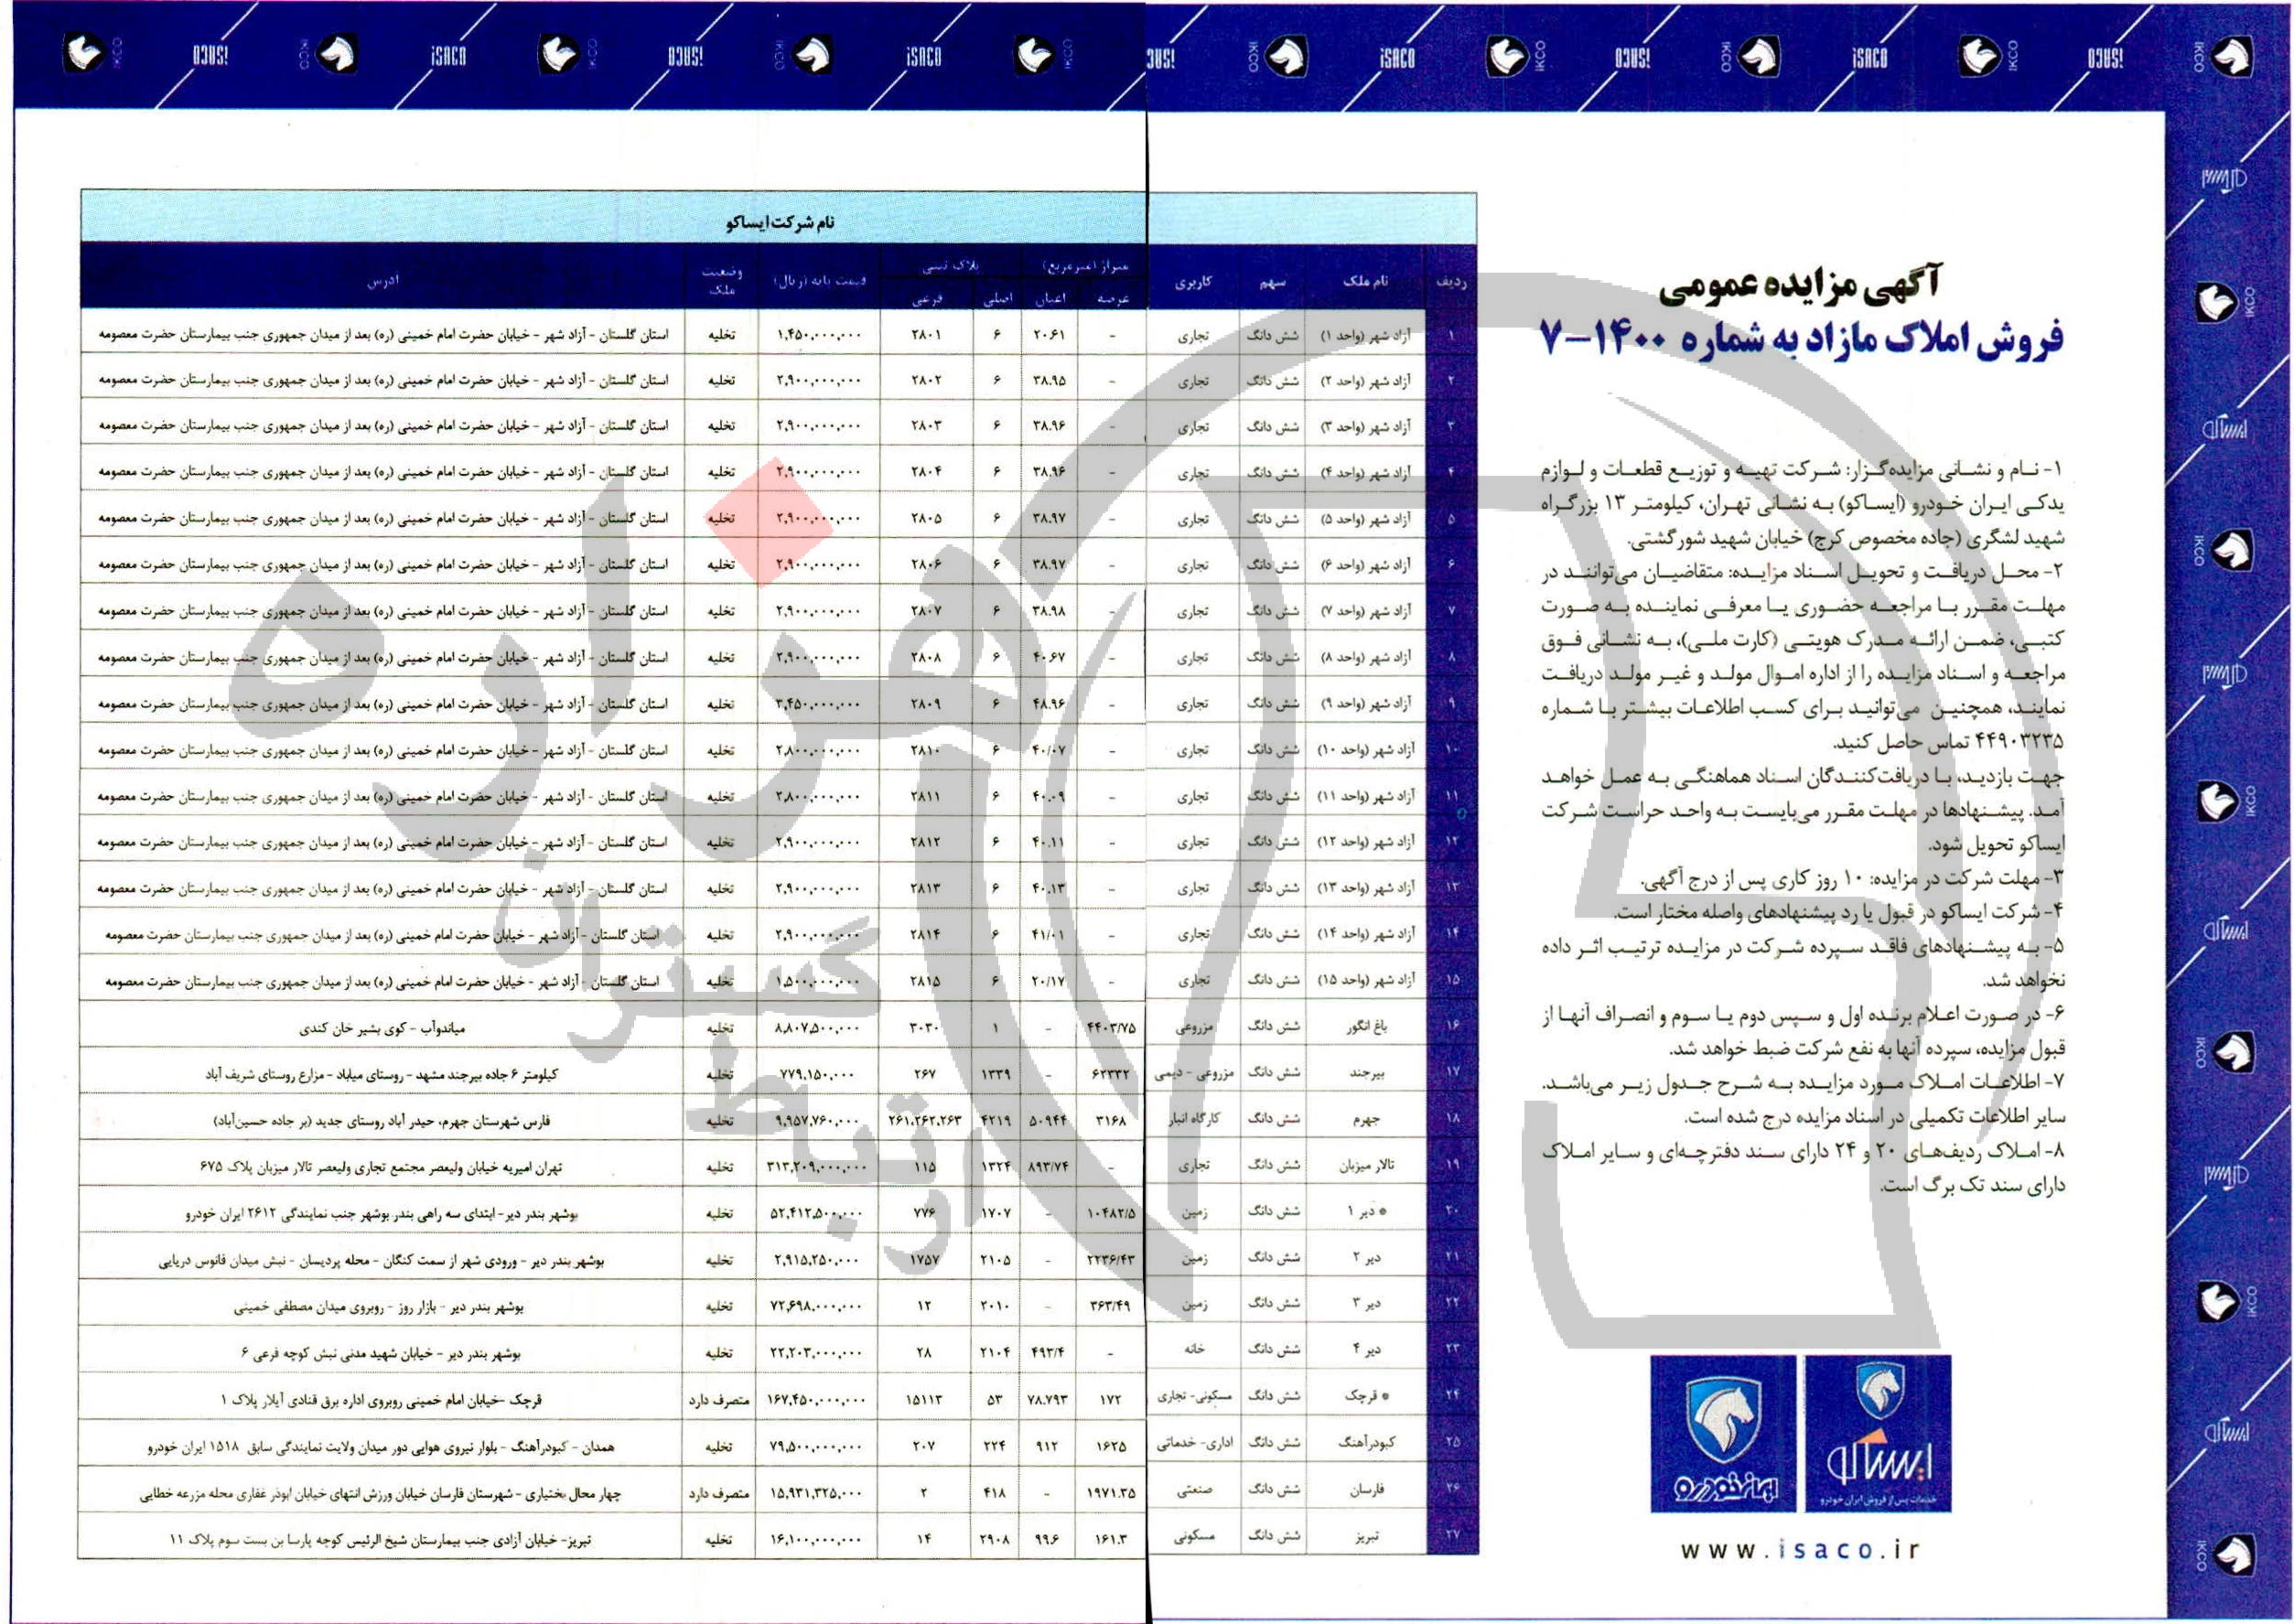 آگهی مزایده عمومی
فروش املاک مازاد به شماره ۱۴۰۰-۷
۱- نام و نشانی مزایده‌گزار: شرکت تهیه و توزیع قطعات و لوازم
یدکی ایران خودرو (ایساکو) به نشانی تهران، کیلومتر ۱۳ بزرگراه
شهید لشگری (جاده مخصوص کرج) خیابان شهید شورگشتی.
۲- محل دریافت و تحویل اسناد مزایده: متقاضیان می‌توانند در
مهلت مقرر با مراجعه حضوری یا معرفی نماینده به صورت
کتبی، ضمن ارائه مدرک هویتی (کارت ملی)، به نشانی فوق
مراجعه و اسناد مزایده را از اداره اموال مولد و غیر مولد دریافت
نمایند، همچنین می‌توانید برای کسب اطلاعات بیشتر با شماره
۴۴۹۰۳۲۳۵ تماس حاصل کنید.
جهت بازدید، با دریافت‌کنندگان اسناد هماهنگی به عمل خواهد
آمد. پیشنهادها در مهلت مقرر می‌بایست به واحد حراست شرکت
ایساکو تحویل شود.
۳- مهلت شرکت در مزایده: ۱۰ روز کاری پس از درج آگهی.
۴- شرکت ایساکو در قبول یا رد پیشنهادهای واصله مختار است.
۵- به پیشنهادهای فاقد سپرده شرکت در مزایده ترتیب اثر داده
نخواهد شد.
۶- در صورت اعلام برنده اول و سپس دوم یا سوم و انصراف آنها از
قبول مزایده، سپرده آنها به نفع شرکت ضبط خواهد شد.
۷- اطلاعات املاک مورد مزایده به شرح جدول زیر می‌باشد.
سایر اطلاعات تکمیلی در اسناد مزایده درج شده است.
۸- املاک ردیف‌های ۲۰ و ۲۴ دارای سند دفترچه‌ای و سایر املاک
دارای سند تک برگ است.
ایران خودرو
ایساکو
خدمات پس از فروش ایران خودرو
www.isaco.ir
نام شرکت ایساکو
ردیف نام ملک سهم کاربری متراژ (مترمربع) عرصه اعیان پلاک ثبتی اصلی فرعی قیمت پایه (ریال) وضعیت ملک آدرس
۱ آزاد شهر (واحد ۱) شش دانگ تجاری - ۲۰.۶۱ ۶ ۲۸۰۱ ۱,۴۵۰,۰۰۰,۰۰۰ تخلیه استان گلستان - آزاد شهر - خیابان حضرت امام خمینی (ره) بعد از میدان جمهوری جنب بیمارستان حضرت معصومه
۲ آزاد شهر (واحد ۲) شش دانگ تجاری - ۳۸.۹۵ ۶ ۲۸۰۲ ۲,۹۰۰,۰۰۰,۰۰۰ تخلیه استان گلستان - آزاد شهر - خیابان حضرت امام خمینی (ره) بعد از میدان جمهوری جنب بیمارستان حضرت معصومه
۳ آزاد شهر (واحد ۳) شش دانگ تجاری - ۳۸.۹۶ ۶ ۲۸۰۳ ۲,۹۰۰,۰۰۰,۰۰۰ تخلیه استان گلستان - آزاد شهر - خیابان حضرت امام خمینی (ره) بعد از میدان جمهوری جنب بیمارستان حضرت معصومه
۴ آزاد شهر (واحد ۴) شش دانگ تجاری - ۳۸.۹۶ ۶ ۲۸۰۴ ۲,۹۰۰,۰۰۰,۰۰۰ تخلیه استان گلستان - آزاد شهر - خیابان حضرت امام خمینی (ره) بعد از میدان جمهوری جنب بیمارستان حضرت معصومه
۵ آزاد شهر (واحد ۵) شش دانگ تجاری - ۳۸.۹۷ ۶ ۲۸۰۵ ۲,۹۰۰,۰۰۰,۰۰۰ تخلیه استان گلستان - آزاد شهر - خیابان حضرت امام خمینی (ره) بعد از میدان جمهوری جنب بیمارستان حضرت معصومه
۶ آزاد شهر (واحد ۶) شش دانگ تجاری - ۳۸.۹۷ ۶ ۲۸۰۶ ۲,۹۰۰,۰۰۰,۰۰۰ تخلیه استان گلستان - آزاد شهر - خیابان حضرت امام خمینی (ره) بعد از میدان جمهوری جنب بیمارستان حضرت معصومه
۷ آزاد شهر (واحد ۷) شش دانگ تجاری - ۳۸.۹۸ ۶ ۲۸۰۷ ۲,۹۰۰,۰۰۰,۰۰۰ تخلیه استان گلستان - آزاد شهر - خیابان حضرت امام خمینی (ره) بعد از میدان جمهوری جنب بیمارستان حضرت معصومه
۸ آزاد شهر (واحد ۸) شش دانگ تجاری - ۴۰.۶۷ ۶ ۲۸۰۸ ۲,۹۰۰,۰۰۰,۰۰۰ تخلیه استان گلستان - آزاد شهر - خیابان حضرت امام خمینی (ره) بعد از میدان جمهوری جنب بیمارستان حضرت معصومه
۹ آزاد شهر (واحد ۹) شش دانگ تجاری - ۴۸.۹۶ ۶ ۲۸۰۹ ۳,۴۵۰,۰۰۰,۰۰۰ تخلیه استان گلستان - آزاد شهر - خیابان حضرت امام خمینی (ره) بعد از میدان جمهوری جنب بیمارستان حضرت معصومه
۱۰ آزاد شهر (واحد ۱۰) شش دانگ تجاری - ۴۰/۰۷ ۶ ۲۸۱۰ ۲,۸۰۰,۰۰۰,۰۰۰ تخلیه استان گلستان - آزاد شهر - خیابان حضرت امام خمینی (ره) بعد از میدان جمهوری جنب بیمارستان حضرت معصومه
۱۱ آزاد شهر (واحد ۱۱) شش دانگ تجاری - ۴۰.۰۹ ۶ ۲۸۱۱ ۲,۸۰۰,۰۰۰,۰۰۰ تخلیه استان گلستان - آزاد شهر - خیابان حضرت امام خمینی (ره) بعد از میدان جمهوری جنب بیمارستان حضرت معصومه
۱۲ آزاد شهر (واحد ۱۲) شش دانگ تجاری - ۴۰.۱۱ ۶ ۲۸۱۲ ۲,۹۰۰,۰۰۰,۰۰۰ تخلیه استان گلستان - آزاد شهر - خیابان حضرت امام خمینی (ره) بعد از میدان جمهوری جنب بیمارستان حضرت معصومه
۱۳ آزاد شهر (واحد ۱۳) شش دانگ تجاری - ۴۰.۱۳ ۶ ۲۸۱۳ ۲,۹۰۰,۰۰۰,۰۰۰ تخلیه استان گلستان - آزاد شهر - خیابان حضرت امام خمینی (ره) بعد از میدان جمهوری جنب بیمارستان حضرت معصومه
۱۴ آزاد شهر (واحد ۱۴) شش دانگ تجاری - ۴۱/۰۱ ۶ ۲۸۱۴ ۲,۹۰۰,۰۰۰,۰۰۰ تخلیه استان گلستان - آزاد شهر - خیابان حضرت امام خمینی (ره) بعد از میدان جمهوری جنب بیمارستان حضرت معصومه
۱۵ آزاد شهر (واحد ۱۵) شش دانگ تجاری - ۲۰/۱۷ ۶ ۲۸۱۵ ۱,۵۰۰,۰۰۰,۰۰۰ تخلیه استان گلستان - آزاد شهر - خیابان حضرت امام خمینی (ره) بعد از میدان جمهوری جنب بیمارستان حضرت معصومه
۱۶ باغ انگور شش دانگ مزروعی ۴۴۰۳/۷۵ - ۱ ۳۰۳۰ ۸,۸۰۷,۵۰۰,۰۰۰ تخلیه میاندوآب - کوی بشیر خان کندی
۱۷ بیرجند شش دانگ مزروعی - دیمی ۶۲۳۳۲ - ۱۳۳۹ ۲۶۷ ۷۷۹,۱۵۰,۰۰۰ تخلیه کیلومتر ۶ جاده بیرجند مشهد - روستای میاباد - مزارع روستای شریف آباد
۱۸ جهرم شش دانگ کارگاه انبار ۳۱۶۸ ۵۰۹۴۴ ۴۲۱۹ ۲۶۱,۲۶۲,۲۶۳ ۹,۹۵۷,۷۶۰,۰۰۰ تخلیه فارس شهرستان جهرم، حیدر آباد روستای جدید (بر جاده حسین‌آباد)
۱۹ تالار میزبان شش دانگ تجاری - ۸۹۳/۷۴ ۱۳۲۴ ۱۱۵ ۳۱۳,۲۰۹,۰۰۰,۰۰۰ تخلیه تهران امیریه خیابان ولیعصر مجتمع تجاری ولیعصر تالار میزبان پلاک ۶۷۵
۲۰ * دیر ۱ شش دانگ زمین ۱۰۴۸۲/۵ - ۱۷۰۷ ۷۷۶ ۵۲,۴۱۲,۵۰۰,۰۰۰ تخلیه بوشهر بندر دیر- ابتدای سه راهی بندر بوشهر جنب نمایندگی ۲۶۱۲ ایران خودرو
۲۱ دیر ۲ شش دانگ زمین ۲۲۳۶/۴۳ - ۲۱۰۵ ۱۷۵۷ ۲,۹۱۵,۲۵۰,۰۰۰ تخلیه بوشهر بندر دیر - ورودی شهر از سمت کنگان - محله پردیسان - نبش میدان فانوس دریایی
۲۲ دیر ۳ شش دانگ زمین ۳۶۳/۴۹ - ۲۰۱۰ ۱۲ ۷۲,۶۹۸,۰۰۰,۰۰۰ تخلیه بوشهر بندر دیر - بازار روز - روبروی میدان مصطفی خمینی
۲۳ دیر ۴ شش دانگ خانه - ۴۹۳/۴ ۲۱۰۴ ۲۸ ۲۲,۲۰۳,۰۰۰,۰۰۰ تخلیه بوشهر بندر دیر - خیابان شهید مدنی نبش کوچه فرعی ۶
۲۴ * قرچک شش دانگ مسکونی- تجاری ۱۷۲ ۷۸.۷۹۳ ۵۳ ۱۵۱۱۳ ۱۶۷,۴۵۰,۰۰۰,۰۰۰ متصرف دارد قرچک -خیابان امام خمینی روبروی اداره برق قنادی آیلار پلاک ۱
۲۵ کبودرآهنگ شش دانگ اداری- خدماتی ۱۶۲۵ ۹۱۲ ۲۲۴ ۲۰۷ ۷۹,۵۰۰,۰۰۰,۰۰۰ تخلیه همدان - کبودرآهنگ - بلوار نیروی هوایی دور میدان ولایت نمایندگی سابق ۱۵۱۸ ایران خودرو
۲۶ فارسان شش دانگ صنعتی ۱۹۷۱.۳۵ - ۴۱۸ ۲ ۱۵,۹۳۱,۳۲۵,۰۰۰ متصرف دارد چهار محال بختیاری - شهرستان فارسان خیابان ورزش انتهای خیابان ابوذر غفاری محله مزرعه خطایی
۲۷ تبریز شش دانگ مسکونی ۱۶۱.۳ ۹۹.۶ ۲۹۰۸ ۱۴ ۱۶,۱۰۰,۰۰۰,۰۰۰ تخلیه تبریز- خیابان آزادی جنب بیمارستان شیخ الرئیس کوچه پارسا بن بست سوم پلاک ۱۱
هزاره
گستران
ارتباط